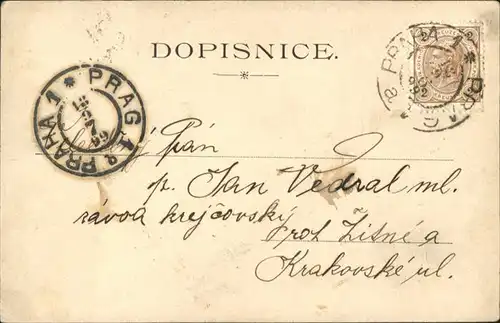 DOPISNICE.
PRAG 1
PRAHA 1
PRAHA 1
PRAG
2
Pán
p. Jan Vedral ml.
závod krejčovský
roh Žitné a
Krakovské ul.